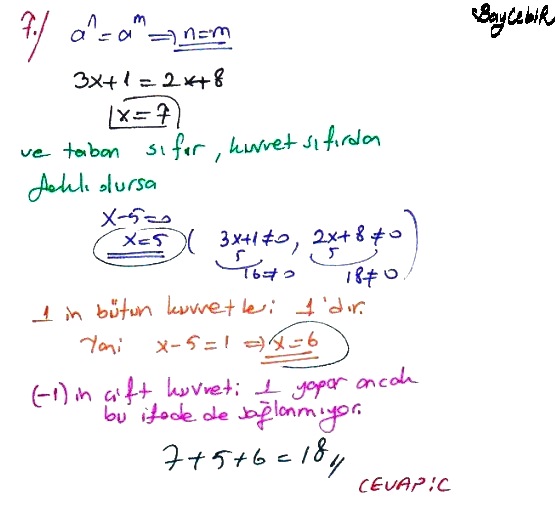 BayCebiR
7./ aⁿ = aᵐ ⟹ n=m
3x+1 = 2x+8
x=7
ve taban sıfır, kuvvet sıfırdan
farklı olursa
x-5=0
x=5 ( 3x+1≠0, 2x+8≠0 )
5 5
16≠0 18≠0
1 in bütün kuvvetleri 1'dir.
Yani x-5=1 ⟹ x=6
(-1) in çift kuvveti 1 yapar ancak
bu ifade de sağlanmıyor.
7+5+6=18//
CEVAP:C